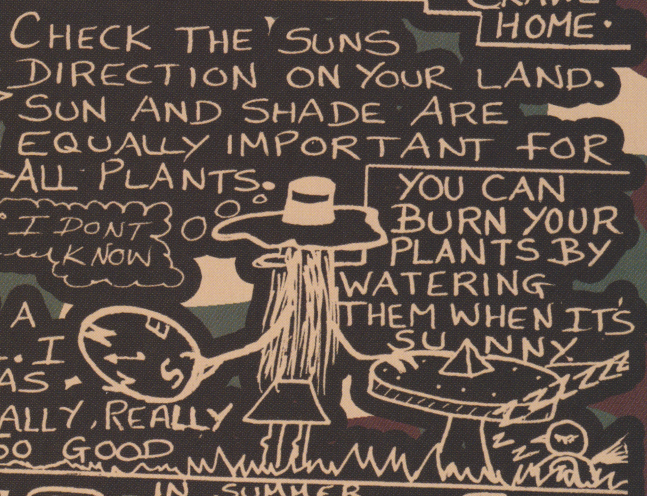 HOME.
CHECK THE SUNS
DIRECTION ON YOUR LAND.
SUN AND SHADE ARE
EQUALLY IMPORTANT FOR
ALL PLANTS.
I DONT
KNOW
YOU CAN
BURN YOUR
PLANTS BY
WATERING
THEM WHEN IT'S
SUNNY.
A
. I
AS
ALLY, REALLY
SO GOOD
N
E
S
W
ZZZZZ
Z
Z
Z
IN SUMMER